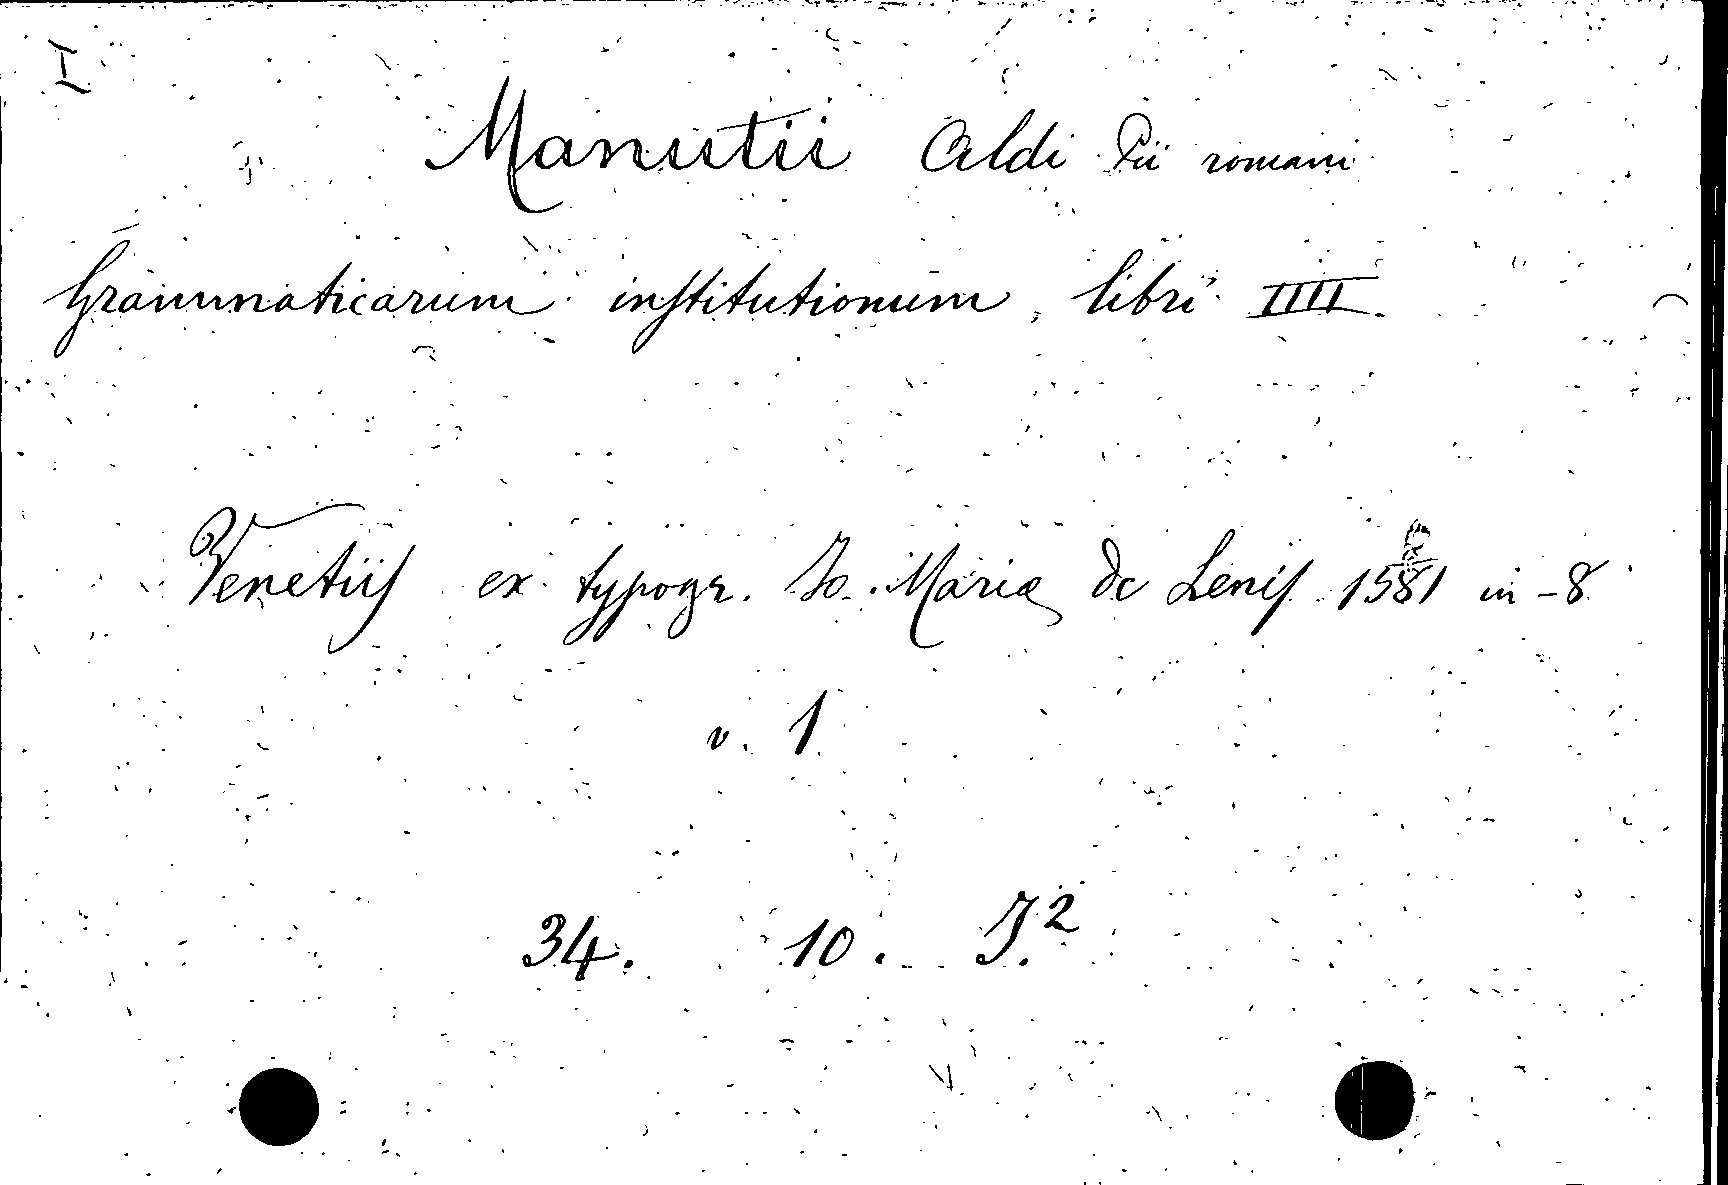 I
Manutii Aldi Pii romani
Grammaticarum institutionum, libri IIII.
Venetiis ex typogr. Jo. Mariæ de Lenis 1581 in-8
v. 1
34. 10. J.²